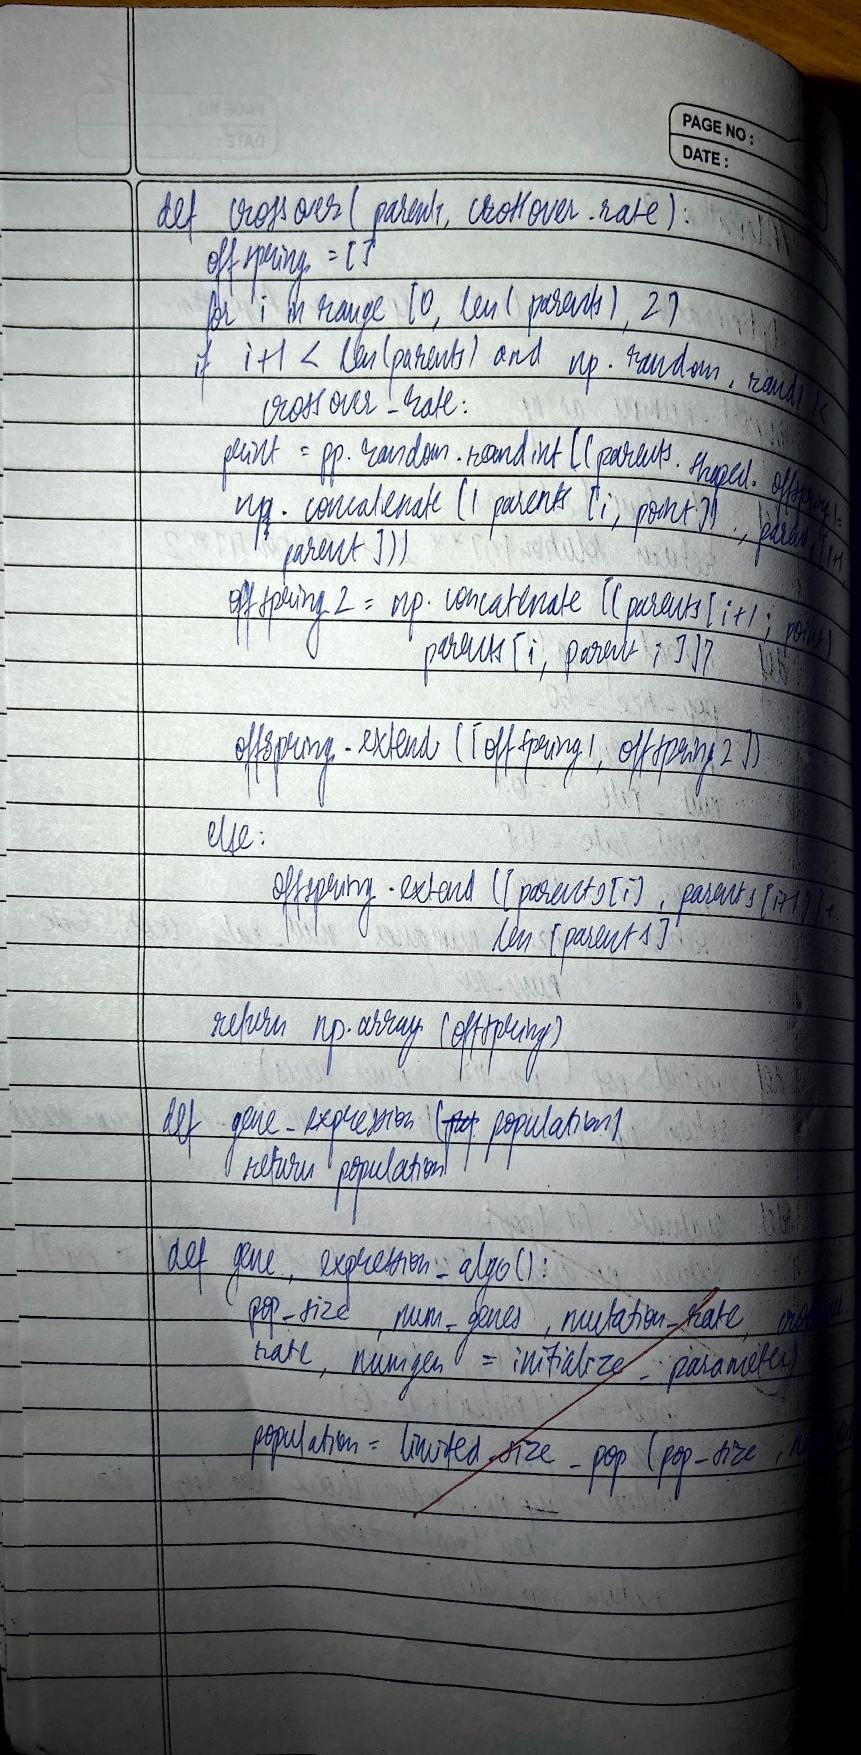 PAGE NO :
DATE :
def crossover( parents, crossover.rate) :
offspring = []
for i in range [0, len( parents) , 2]
if i+1 < len(parents) and np. random. rand( ) <
crossover_rate:
point = pp. random. randint [(parents. shaped. offspring1=
np. concatenate (( parents [i, point]) , parents [i+1
parent ]))
offspring 2 = np. concatenate [(parents[i+1 ; point)
parents [i, parent ; ]])
offspring. extend ([offspring1, offspring 2 ])
else:
offspring. extend ([ parents [i] , parents [i+1]] +
len [parents]
return np.array (offspring)
def gene_expression ( population)
return population
def gene, expression_algo():
pop_size , num_genes , mutation_rate,
rate, numgen = initialize _ parameter)
population = limited_size _ pop (pop_size ,